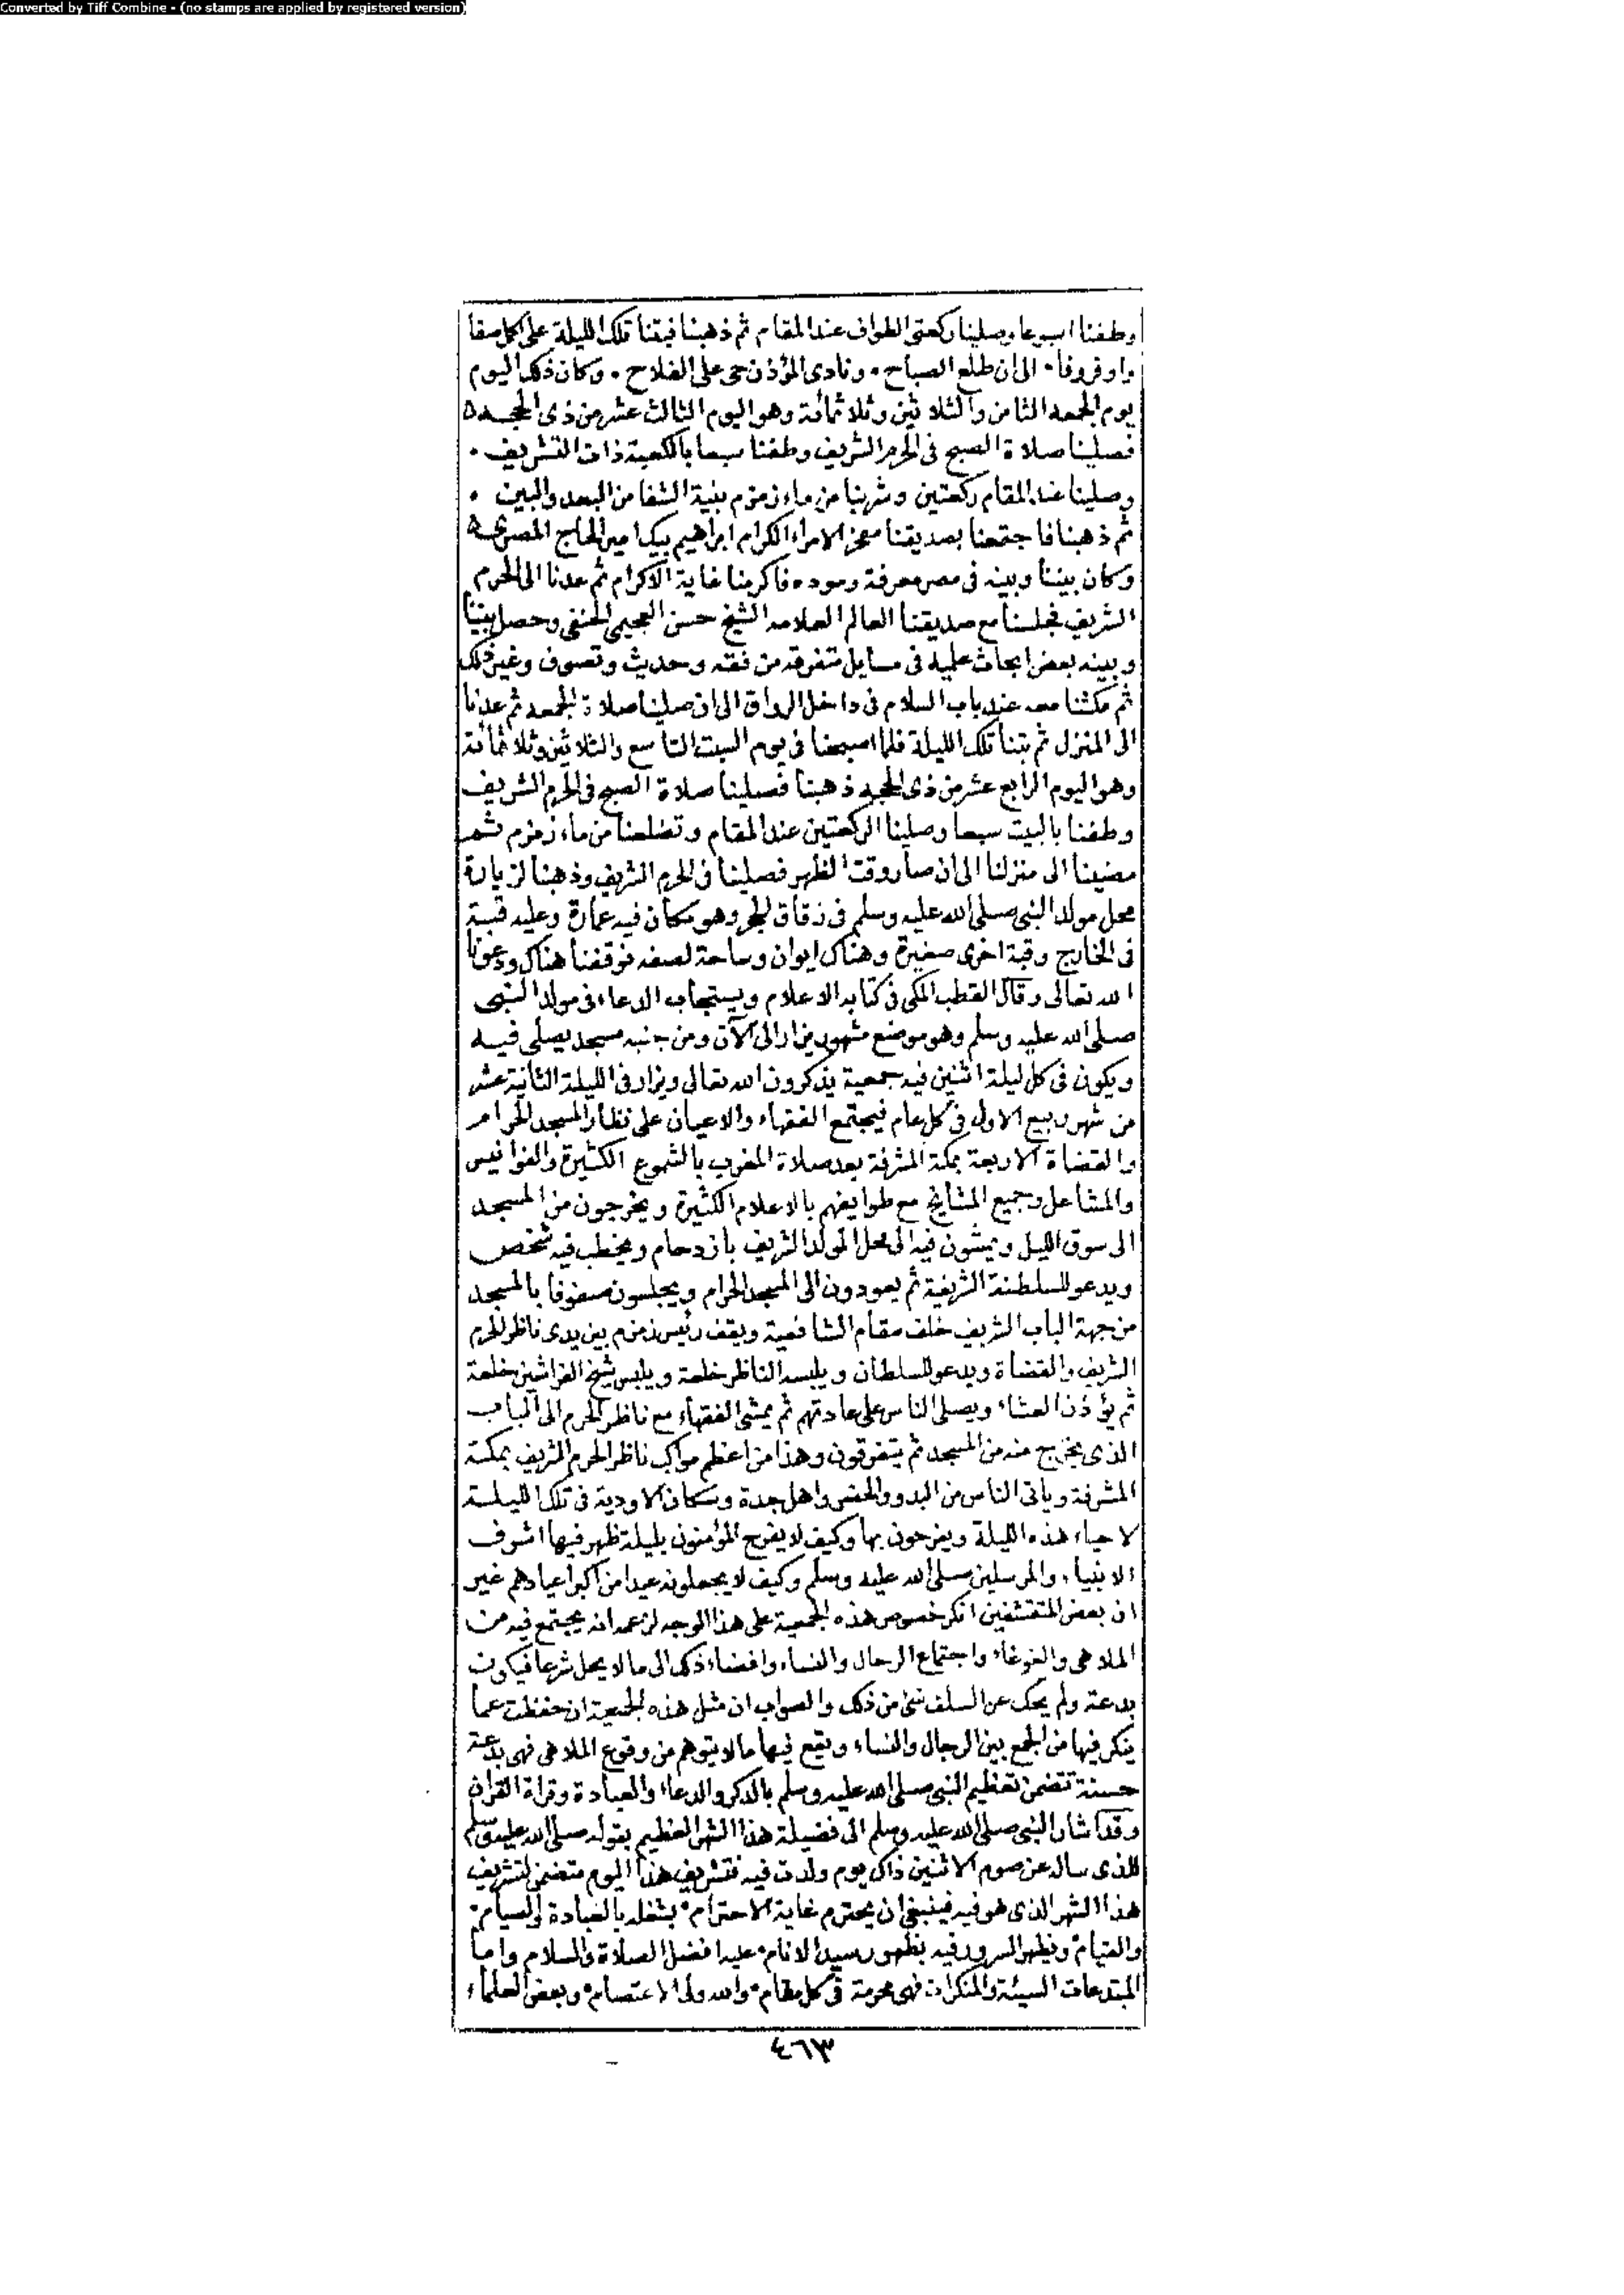 Converted by Tiff Combine - (no stamps are applied by registered version)
وطفنا اسبوعا وصلينا ركعتي الطواف عند المقام ثم ذهبنا فبتنا تلك الليلة على اكمل صفا
واوفر وفا • الى ان طلع الصباح • ونادى المؤذن حي على الفلاح • وكان ذلك اليوم
يوم الجمعه الثامن والثلاثين وثلاثمائة وهو اليوم الثالث عشر من ذى الحجه
فصلينا صلاة الصبح فى الحرم الشريف وطفنا سبعا بالكعبة ذات التشريف •
وصلينا عند المقام ركعتين وشربنا من ماء زمزم بنية الشفا من البعد والبين •
ثم ذهبنا فاجتمعنا بصديقنا معز الامراء الكرام ابراهيم بيك امير الحاج المصرى
وكان بيننا وبينه فى مصر معرفة وموده فاكرمنا غاية الاكرام ثم عدنا الى الحرم
الشريف فجلسنا مع صديقنا العالم العلامه الشيخ حسن العجيمي الحنفي وحصل بيننا
وبينه بعض ابحاث علمية فى مسايل متفرقه من فقه وحديث وتصوف وغير ذلك
ثم مكثنا معه عند باب السلام فى داخل الرواق الى ان صلينا صلاة الجمعه ثم عدنا
الى المنزل ثم بتنا تلك الليلة فلما اصبحنا فى يوم السبت التاسع والثلاثين وثلاثمائة
وهو اليوم الرابع عشر من ذى الحجه ذهبنا فصلينا صلاة الصبح فى الحرم الشريف
وطفنا بالبيت سبعا وصلينا الركعتين عند المقام وتضلعنا من ماء زمزم ثم
مضينا الى منزلنا الى ان صار وقت الظهر فصلينا فى الحرم الشريف وذهبنا لزيارة
محل مولد النبي صلى الله عليه وسلم فى زقاق الحجر وهو مكان فيه عمارة وعليه قبة
فى الخارج وقبة اخرى صغيرة وهناك ايوان وساحة لصفه فوقفنا هناك ودعونا
الله تعالى وقال القطب المكي فى كتابه الاعلام ويستجاب الدعاء فى مولد النبي
صلى الله عليه وسلم وهو موضع مشهور يزار الى الآن ومن جنبه مسجد يصلى فيه
ويكون فى كل ليلة اثنين فيه جمعية يذكرون الله تعالى ويزار فى الليلة الثانية عشر
من شهر ربيع الاول فى كل عام فيجتمع الفقهاء والاعيان على نظار المسجد الحرام
والقضاة الاربعة بمكة المشرفة بعد صلاة المغرب بالشموع الكثيرة والفوانيس
والمشاعل وجميع المشايخ مع طوايفهم بالاعلام الكثيرة ويخرجون من المسجد
الى سوق الليل ويمشون فيه الى محل المولد الشريف بازدحام ويخطب فيه شخص
ويدعو للسلطنة الشريفة ثم يعودون الى المسجد الحرام ويجلسون صفوفا بالمسجد
من جهة الباب الشريف خلف مقام الشافعية ويقف رئيس زمزم بين يدى ناظر الحرم
الشريف والقضاة ويدعو للسلطان ويلبسه الناظر خلعة ويلبس شيخ الفراشين خلعة
ثم يؤذن العشاء ويصلى الناس على عادتهم ثم يمشى الفقهاء مع ناظر الحرم الى الباب
الذى يخرج منه من المسجد ثم يتفرقون وهذا من اعظم مواكب ناظر الحرم الشريف بمكة
المشرفة وياتى الناس من البدو والحضر واهل جدة وسكان الاودية فى تلك الليلة
لاحياء هذه الليلة ويفرحون بها وكيف لا يفرح المؤمنون بليلة ظهر فيها اشرف
الانبياء والمرسلين صلى الله عليه وسلم وكيف لا يجعلونه عيدا من اكبر اعيادهم غير
ان بعض المتقشفين انكر خصوص هذه الجمعية على هذا الوجه لزعمه انه يجتمع فيه من
الملاهى والغوغاء واجتماع الرجال والنساء وافضاء ذلك الى ما لا يحل شرعا فيكون
بدعة ولم يحك عن السلف شئ من ذلك والصواب ان مثل هذه الجمعية ان حفظت عما
ينكر فيها من الجمع بين الرجال والنساء ويقع فيها ما لا يتوهم من وقوع الملاهى فهى بدعة
حسنة تتضمن تعظيم النبي صلى الله عليه وسلم بالذكر والدعاء والعبادة وقراة القران
وقد اشار النبي صلى الله عليه وسلم الى فضيلة هذا الشهر العظيم بقوله صلى الله عليه وسلم
للذى سال عن صوم الاثنين ذاك يوم ولدت فيه فتشريف هذا اليوم متضمن لتشريف
هذا الشهر الذى هو فيه فينبغي ان يحترم غاية الاحترام بشغله بالعبادة والصيام
والقيام ويظهر السرور فيه بظهور سيد الانام عليه افضل الصلاة والسلام واما
المبتدعات السيئة والمنكرات فهى محرمة فى كل مقام والله ولى الاعتصام وبعض العلماء
٤٦٣